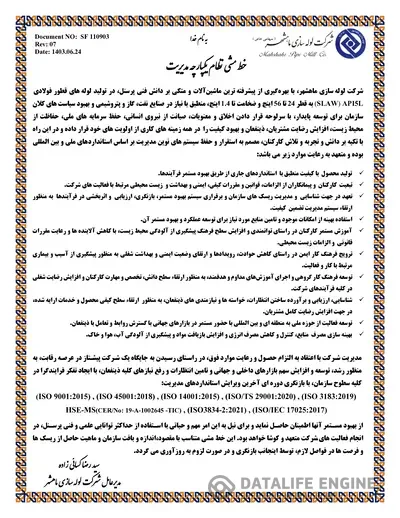 Document NO: SF 110903
Rev: 07
Date: 1403.06.24
به نام خدا
شرکت لوله سازی ماهشهر (سهامی خاص)
Mahshahr Pipe Mill Co.
خط مشی نظام یکپارچه مدیریت
شرکت لوله سازی ماهشهر، با بهره‌گیری از پیشرفته ترین ماشین‌آلات و متکی بر دانش فنی پرسنل، در تولید لوله های قطور فولادی
(SLAW) API5L به قطر 24 تا 56 اینچ و ضخامت تا 1.4 اینچ، منطبق با نیاز در صنایع نفت، گاز و پتروشیمی و بهبود سیاست های کلان
سازمان برای توسعه پایدار، با سرلوحه قرار دادن اخلاق و معنویات، صیانت از نیروی انسانی، حفظ سرمایه های ملی، حفاظت از
محیط زیست، افزایش رضایت مشتریان، ذینفعان و بهبود کیفیت را در همه زمینه های کاری از اولویت های خود قرار داده و در این راه
با تکیه بر دانش و تجربه و تلاش کارکنان، مصمم به استقرار و حفظ سیستم های نوین مدیریت بر اساس استانداردهای ملی و بین المللی
بوده و متعهد به رعایت موارد زیر می باشد:
تولید محصول با کیفیت منطبق با استانداردهای جاری از طریق بهبود مستمر فرآیندها.
تبعیت کارکنان و پیمانکاران از الزامات، قوانین و مقررات کیفی، ایمنی و بهداشت و زیست محیطی مرتبط با فعالیت های شرکت.
تعهد در جهت شناسایی و مدیریت ریسک های سازمان و برقراری سیستم بهبود مستمر، بازنگری، ارزیابی و اثربخشی در فرآیندها به منظور
ارتقاء سیستم مدیریت تضمین کیفیت.
استفاده بهینه از امکانات موجود و تامین منابع مورد نیاز برای توسعه عملکرد و بهبود مستمر آن.
آموزش مستمر کارکنان در راستای توانمندی و افزایش سطح فرهنگ پیشگیری از آلودگی محیط زیست، با کاهش آلاینده ها و رعایت مقررات
قانونی و الزامات زیست محیطی.
ترویج فرهنگ کار ایمن در راستای کاهش حوادث، رویدادها و ارتقای وضعیت ایمنی و بهداشت شغلی به منظور پیشگیری از آسیب و بیماری
مرتبط با کار و فعالیت.
توسعه فرهنگ کار گروهی و اجرای آموزش‌های مداوم و هدفمند، به منظور ارتقاء سطح دانش، تخصص و مهارت کارکنان و افزایش رضایت شغلی
در کلیه فرآیندهای شرکت.
شناسایی، ارزیابی و برآورده ساختن انتظارات، خواسته ها و نیازمندی های ذینفعان، به منظور ارتقاء سطح کیفی محصول و خدمات ارایه شده،
در جهت افزایش رضایت کامل مشتریان.
توسعه فعالیت از حوزه ملی به منطقه ای و بین المللی با حضور مستمر در بازارهای جهانی با گسترش روابط و تعامل با ذینفعان.
بهینه سازی مصرف منابع، کنترل و کاهش مصرف انرژی و افزایش بازیافت مواد و پیشگیری از آلودگی آب، هوا و خاک.
مدیریت شرکت با اعتقاد به التزام حصول و رعایت موارد فوق، در راستای رسیدن به جایگاه یک شرکت پیشتاز در عرصه رقابت، به
منظور رشد، توسعه و افزایش سهم بازارهای داخلی و جهانی و تامین انتظارات و رفع نیازهای کلیه ذینفعان، با ایجاد تفکر فرایندگرا در
کلیه سطوح سازمان، با بازنگری دوره ای آخرین ویرایش استانداردهای مدیریت:
(ISO 9001:2015) , (ISO 45001:2018) , (ISO 14001:2015) , (ISO/TS 29001:2020) , (ISO 3183:2019)
HSE-MS(CER/No: 19-A-1002645 -TIC) , (ISO3834-2:2021) , (ISO/IEC 17025:2017)
از بهبود مستمر آنها اطمینان حاصل نماید و برای نیل به این امر مهم و حیاتی با استفاده از حداکثر توانایی علمی و فنی پرسنل، در
انجام فعالیت های شرکت متعهد و کوشا خواهد بود. این خط مشی متناسب با مقصود،اندازه و بافت سازمان و ماهیت حاصل از ریسک ها
و فرصت ها در فواصل لازم، توسط اینجانب بازنگری و در صورت لزوم به روزآوری می گردد.
سید رضا کسائی زاده
مدیرعامل شرکت لوله سازی ماهشهر
DATALIFE ENGINE